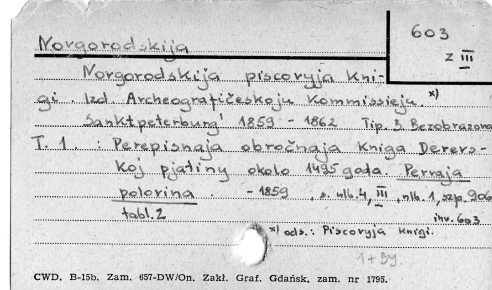 603
z III
Novgorodskija
Novgorodskija piscovyja kni-
gi. Izd. Archeografičeskoju Kommissieju. x)
Sanktpeterburg' 1859 - 1862 Tip. B. Bezobrazova
T. 1. : Perepisnaja obročnaja kniga Derevs-
koj pjatiny okolo 1495 goda. Pervaja
polovina. - 1859, s. nlb. 4, III, nlb. 1, szp. 906
tabl. 2 inv. 603
x) ods.: Piscovyja knigi.
CWD. B-15b. Zam. 657-DW/On. Zakł. Graf. Gdańsk, zam. nr 1795.